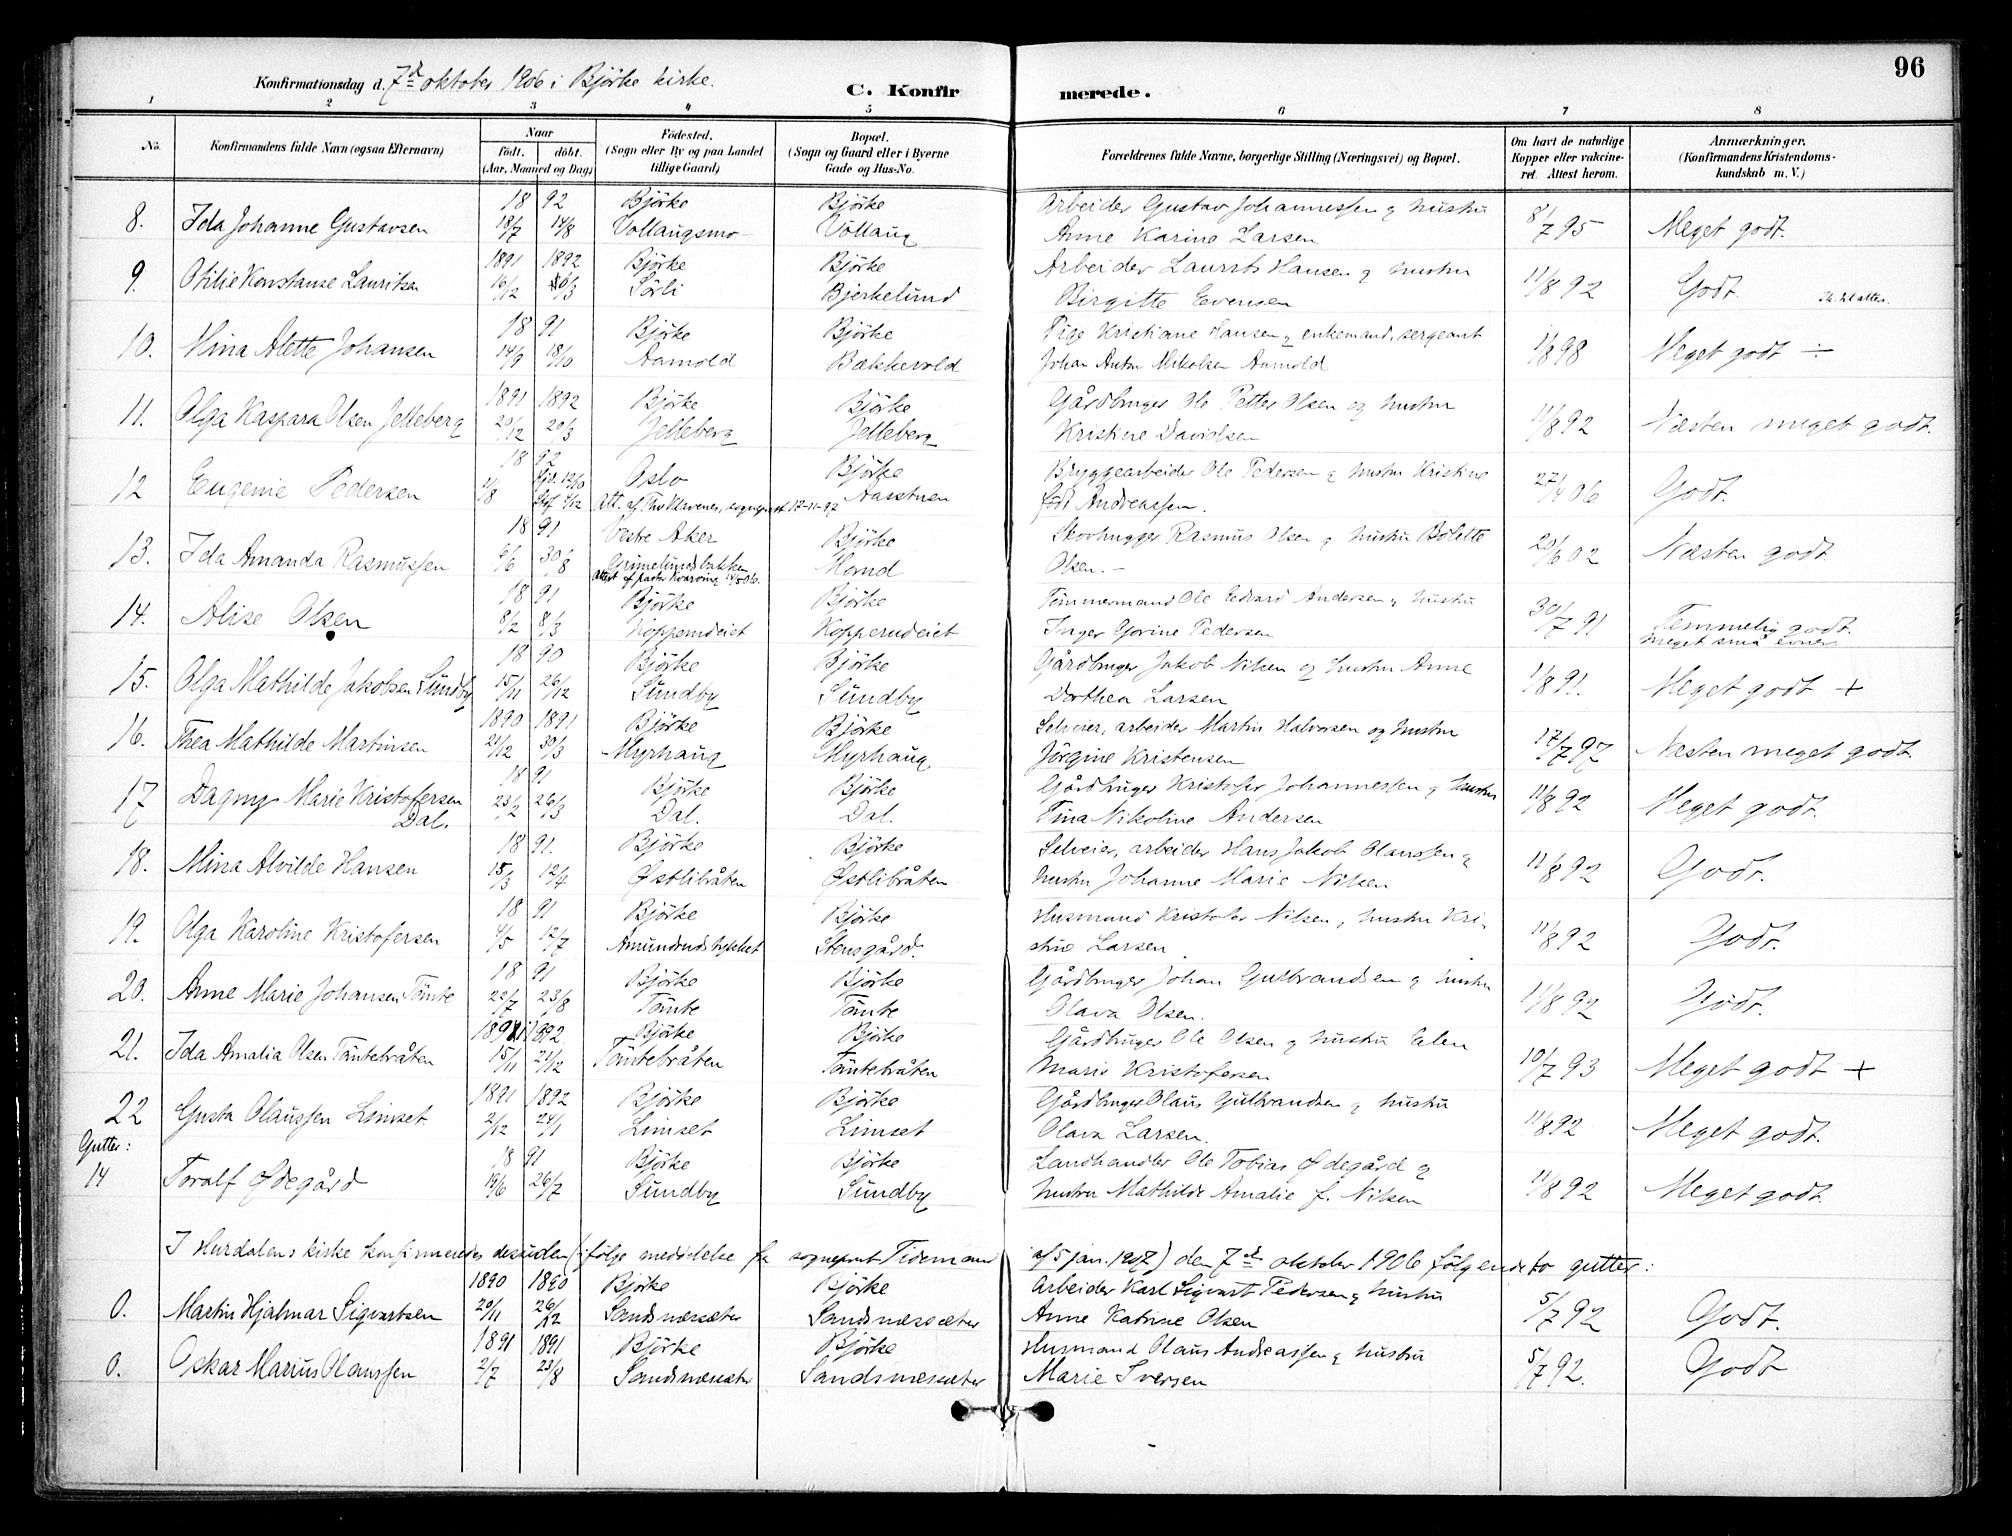 96
Konfirmationsdag d. 7de oktober 1906 i Bjørke kirke.
C. Konfirmerede.
1 2 3 4 5 6 7 8
No. Konfirmandens fulde Navn (ogsaa Efternavn) Naar født. døbt. (Aar, Maaned og Dag) Fødested. (Sogn eller By og paa Landet tillige Gaard) Bopæl. (Sogn og Gaard eller i Byerne Gade og Hus-No. Forældrenes fulde Navne, borgerlige Stilling (Næringsvei) og Bopæl. Om havt de naturlige Kopper eller vakcineret. Attest herom. Anmærkninger. (Konfirmandens Kristendomskundskab m. V.)
18 92 Bjørke Bjørke Arbeider Gustav Johannessen og hustru
8. Ida Johanne Gustavsen 18/7 14/8 Vollaugsmo Vollaug Anne Karine Larsen 8/7 95 Meget godt.
1891 1892 Bjørke Bjørke Arbeider Laurits Hansen og hustru
9. Otilie Konstanse Lauritsen 16/12 6/3 Sørli Bjerkelund Birgitte Evensen 11/8 92 Godt.
18 91 Bjørke Bjørke Pige Kristiane Hansen og enkemand, sergeant
10. Mina Alette Johansen 14/9 18/10 Aarnold Bakkevold Johan Anton Nikolsen Aarnold 11/8 98 Meget godt ÷
1891 1892 Bjørke Bjørke Gårdbruger Ole Petter Olsen og hustru
11. Olga Kaspara Olsen Jelleberg 20/12 20/3 Jelleberg Jelleberg Kristine Davidsen 11/8 92 Næsten meget godt.
18 92 Oslo Bjørke Bryggearbeider Ole Pedersen og hustru Kristine
12 Eugenie Pedersen 11/8 Hjd. 12/10 Stf 4/12 Aasstuen født Andreassen. 27/4 06 Godt.
Att. af Th. Klavenes, sognepræst 17-11-92
18 91 Vestre Aker Bjørke Skovhugger Rasmus Olsen og hustru Bolette
13. Ida Amanda Rasmussen 6/6 30/8 Grimelundsbakken Hornd Olsen. — 20/6 02 Næsten godt.
Attest af pastor Kvarving 14/5 06.
18 91 Bjørke Bjørke Tømmermand Ole Edvard Andersen og hustru
14. Alise Olsen 8/2 8/3 Kopperudeiet Kopperudeiet Inger Gorine Pedersen 30/7 91 Temmelig godt.
meget små evner.
18 90 Bjørke Bjørke Gårdbruger Jakob Nilsen og hustru Anne
15. Olga Mathilde Jakobsen Sundby 15/11 26/12 Sundby Sundby Dorthea Larsen 11/8 91. Meget godt +
1890 1891 Bjørke Bjørke Selveier, arbeider Martin Halvorsen og hustru
16. Thea Mathilde Martinsen 21/12 30/3 Myrhaug Myrhaug Jørgine Kristensen 17/7 97 Næsten meget godt.
18 91 Bjørke Bjørke Gårdbruger Kristofer Johannessen og hustru
17 Dagny Marie Kristofersen Dal. 23/2 26/3 Dal. Dal. Tina Nikoline Andersen 11/8 92 Meget godt.
18 91. Bjørke Bjørke Selveier, arbeider Hans Jakob Olaussen og
18. Mina Alvilde Hansen 15/3 12/4 Østlibråten Østlibråten hustru Johanne Marie Nilsen 11/8 92 Godt.
18 91 Bjørke Bjørke Husmand Kristofer Nilsen og hustru Kri-
19. Olga Karoline Kristofersen 9/5 12/7 Amundrudstykket Stensgård. stine Larsen 11/8 92 Godt.
18 91 Bjørke Bjørke Gårdbruger Johan Gulbrandsen og hustru
20. Anne Marie Johansen Tømte 22/7 23/8 Tømte Tømte Olava Olsen. 11/8 92 Godt.
1892 Bjørke Bjørke Gårdbruger Ole Olsen og hustru Elen
21. Ida Amalia Olsen Tömtebråten 15/11 21/12 Tömtebråten Tömtebråten Marie Kristofersen 10/7 93 Meget godt +
1891 1892 Bjørke Bjørke Gårdbruger Olaus Gulbrandsen og hustru
22 Gusta Olaussen Limset 2/12 24/1 Limset Limset Olava Larsen. 11/8 92 Meget godt.
Gutter: 18 91 Bjørke Bjørke Landhandler Ole Tobias Ødegård og
14 Toralf Ødegård 19/6 26/7 Sundby Sundby hustru Mathilde Amalie f. Nilsen 11/8 92 Meget godt.
I Hurdalens kirke konfirmeredes desuden (ifølge meddelelse fra sogneprest Tidemand af 5 jan. 1907) den 7de oktober 1906 følgende to gutter:
1890 1890 Bjørke Bjørke Arbeider Karl Sigvart Pedersen og hustru
0. Martin Hjalmar Sigvartsen 20/11 26/12 Sandsnessæter Sandsnessæter Anne Katrine Olsen 5/7 92 Godt.
1891 1891 Bjørke Bjørke Husmand Olaus Andreassen og hustru
0. Oskar Marius Olaussen 2/7 23/8 Sandsnessæter Sandsnessæter Marie Iversen 5/7 92. Godt